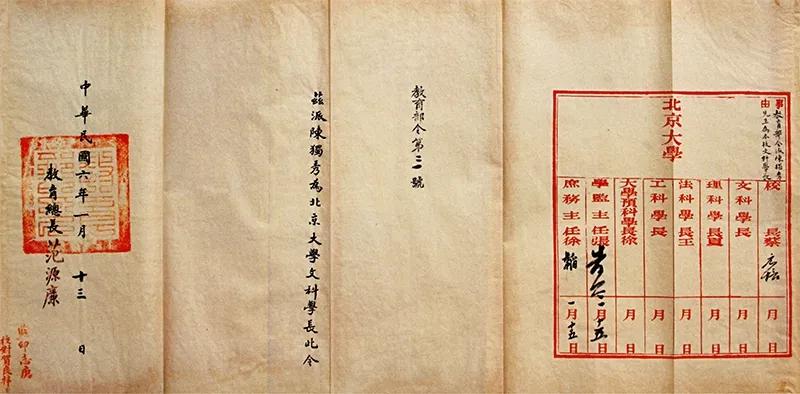 事由
教育部令派陳獨秀
先生為本校文科學長
北京大學
校長蔡 元培 月 日
文科學長 月 日
理科學長夏 月 日
法科學長王 月 日
工科學長 月 日
大學預科學長徐 月 日
學監主任張 一月十五日
庶務主任徐 一月十五日
教育部令第三號
茲派陳獨秀為北京大學文科學長此令
中華民國六年一月十三日
教育總長范源廉
監印志廣
校對賀良樸